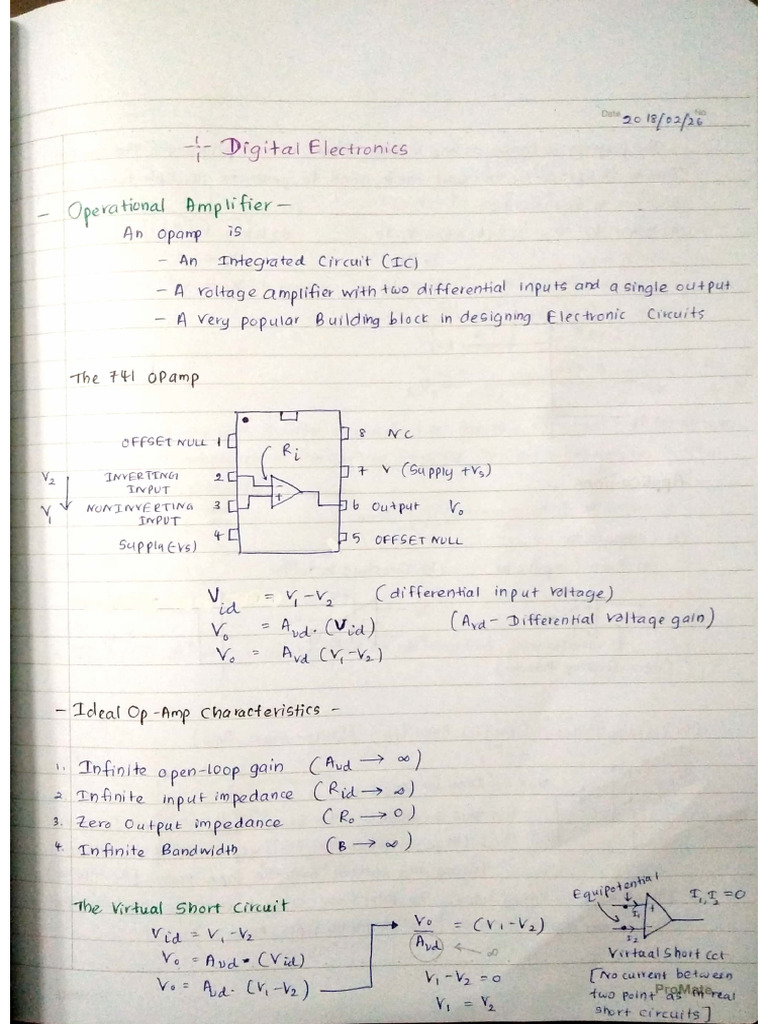 Date 2018/02/26 No
Digital Electronics
- Operational Amplifier -
An Opamp is
- An Integrated Circuit (IC)
- A voltage amplifier with two differential inputs and a single output
- A very popular Building block in designing Electronic Circuits
The 741 OPamp
OFFSET NULL 1
8 NC
Ri
V2
INVERTING INPUT 2
7 V (Supply +Vs)
V1
NONINVERTING INPUT 3
6 Output Vo
Supply(-Vs) 4
5 OFFSET NULL
- +
Vid = V1 - V2 (differential input voltage)
Vo = Avd. (Vid) (Avd - Differential voltage gain)
Vo = Avd (V1 - V2)
- Ideal Op-Amp Characteristics -
1. Infinite open-loop gain (Avd → ∞)
2. Infinite input impedance (Rid → ∞)
3. Zero Output impedance (Ro → 0)
4. Infinite Bandwidth (B → ∞)
The Virtual Short Circuit
Vid = V1 - V2
Vo = Avd • (Vid)
Vo = Avd. (V1 - V2)
Vo / Avd = (V1 - V2)
∞
V1 - V2 = 0
V1 = V2
Equipotential
I1, I2 = 0
I1
+
-
I2
Virtual short cct
[No current between
two point as in real
short circuits]
ProMate